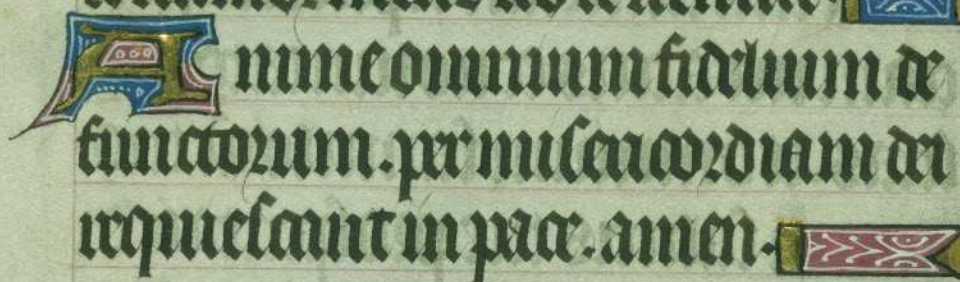 Anime omnium fidelium de
functorum. per misericordiam dei
requiescant in pace. amen.